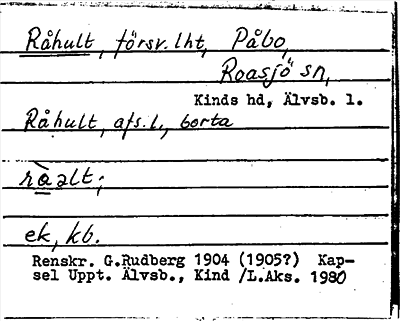 Råhult, försv. lht, Påbo,
Roasjö sn,
Kinds hd, Älvsb. l.
Råhult, afs. l., borta
rə̀alt;
ek, kb.
Renskr. G.Rudberg 1904 (1905?) Kap-
sel Uppt. Älvsb., Kind /L.Aks. 1980